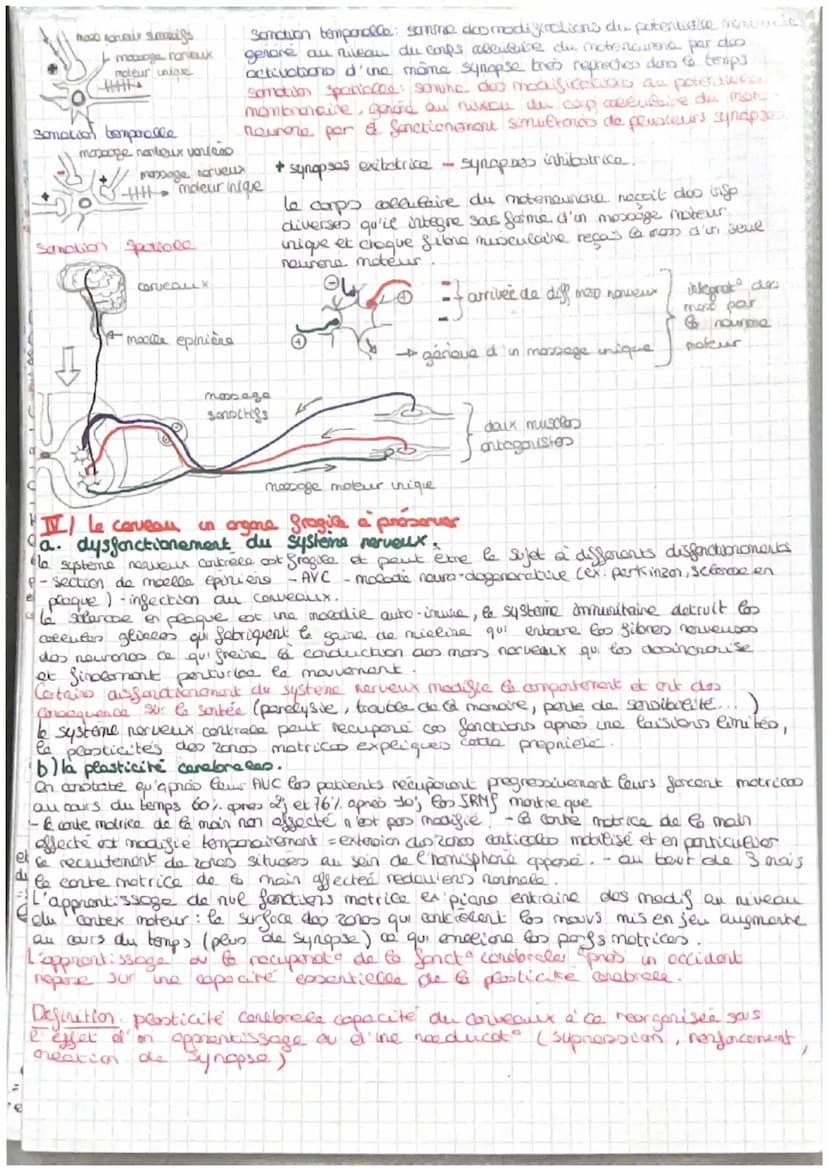 mess nerveux sensitifs
message nerveux
moteur unique
somation temporelle
Somation temporelle: somme des modifications du potentielle
generé au niveau du corps cellulaire du motoneurone par des
activations d'une même synapse très reprochés dans le temps
somation spatialle: somme des modifications du potentielle
membranaire, generé au niveau du corp cellulaire du
neurone par le fonctionement simultanés de plusieurs synapses
message nerveux
message nerveux
moteur unique
Somation spatiale
+ synapses exitatrice - synapses inhibitrice.
le corps cellulaire du motoneurone reçoit des info
diverses qu'il integre sous forme d'un message moteur
unique et chaque fibre musculaire reçois le mess d'un seul
neurone moteur.
cerveaux
moelle epinière
arrivée de diff mes nerveux
génère d'un message unique
integrat° des
mess par
le neurone
moteur
message
sensitifs
deux muscles
antagonistes
message moteur unique
IV) le cerveau un organe fragile à préserver
a. dysfonctionement du système nerveux.
le systeme nerveux centrale est fragile et peut être le sujet à differents disfonctionnements
- section de moelle epinière - AVC - maladie neuro-degenerative (ex: parkinzon, sclérose en
plaque) - infection du cerveaux.
la sclerose en plaque est une maladie auto-imune, le système immunitaire detruit les
cellules gliales qui fabriquent la gaine de mieline qui entoure les fibres nerveuses
des neurones ce qui freine la conduction des mess nerveux qui les desincronise
et finalement perturbe le mouvement.
Certains disfonctionement du systeme nerveux modifie le comportement et ont des
consequence sur la santée (paralysie, trouble de la memoire, perte de sensibelité...)
le système nerveux centrale peut recuperé ces fonctions après une laisions limités,
la plasticités des zones motrices expliques cette propriete.
b) la plasticité cerebrales.
On constate qu'après leurs AVC les patients récupèrent progressivement leurs forcent motrices
au cours du temps 60% apres 2j et 76% après 30j les IRMf montre que
- la carte motrice de la main non affecté n'est pas modifié. - la carte motrice de la main
affecté est modifié temporairement = extension des zones corticales mobilisé et en particulier
le recrutement de zones situées au sein de l'hemisphere opposé. - au bout de 3 mois
la carte motrice de la main affecteé redeviens normale.
L'apprentissage de nvl fonctions motrice ex: piano entraine des modif au niveau
du cortex moteur: la surface des zones qui controlent les mouvs mis en jeu augmente
au cours du temps (plus de synapse) ce qui ameliore les perfs motrices.
L'apprentissage ou la recuperat° de la fonct° cerebrales après un accident
repose sur une capacité essentielle de la plasticité cerebrale.
Definition: plasticité cerebrale capacité du cerveaux à ce reorganisée sous
l'effet d'un apprentissage ou d'une reeducat° (supression, renforcement,
création de synapse)